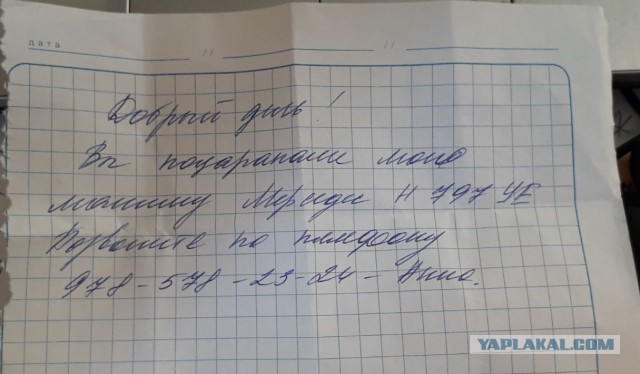 дата
Добрый день!
Вы поцарапали мою
машину Мерседес Н 797 УЕ
Позвоните по телефону
978-578-23-24 - Анна.
YAPLAKAL.COM